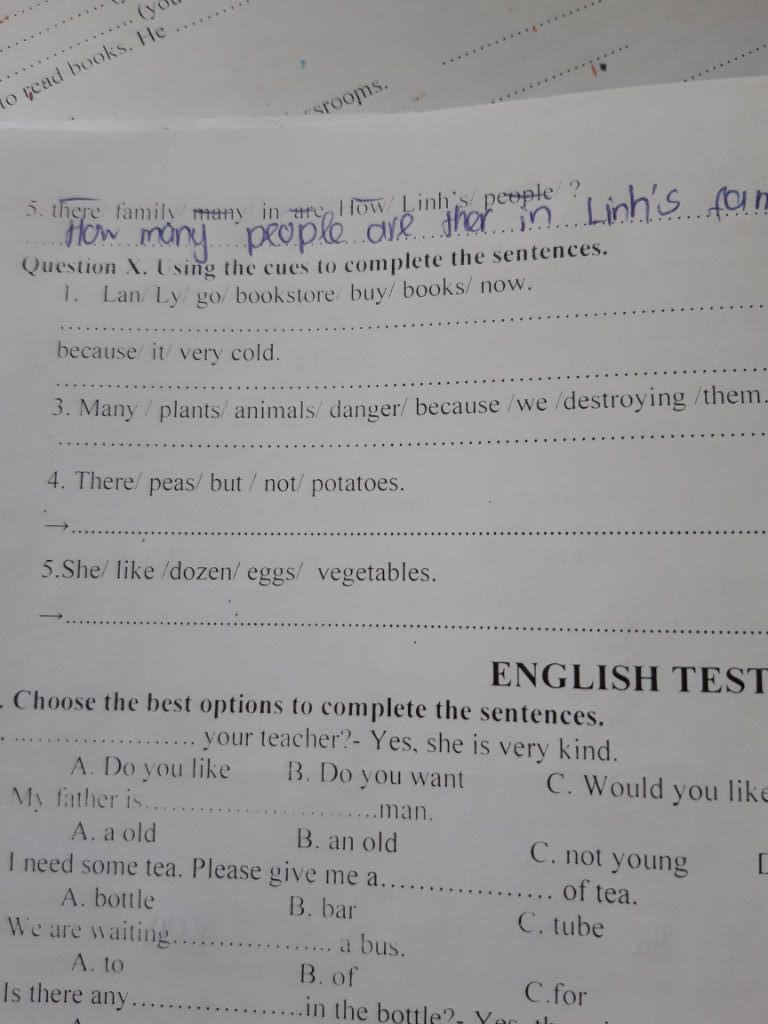 (you
to read books. He ..........
srooms.
5. there family/ many/ in are How/ Linh's/ people/ ?
How many people are ther in Linh's fam
Question X. Using the cues to complete the sentences.
1. Lan/ Ly/ go/ bookstore/ buy/ books/ now.
because/ it/ very cold.
3. Many / plants/ animals/ danger/ because /we /destroying /them.
4. There/ peas/ but / not/ potatoes.
→
5.She/ like /dozen/ eggs/ vegetables.
→
ENGLISH TEST
. Choose the best options to complete the sentences.
.................... your teacher?- Yes, she is very kind.
A. Do you like B. Do you want C. Would you like
My father is..........................man.
A. a old B. an old C. not young D
I need some tea. Please give me a................... of tea.
A. bottle B. bar C. tube
We are waiting.................. a bus.
A. to B. of C.for
Is there any....................in the bottle?- Yes,